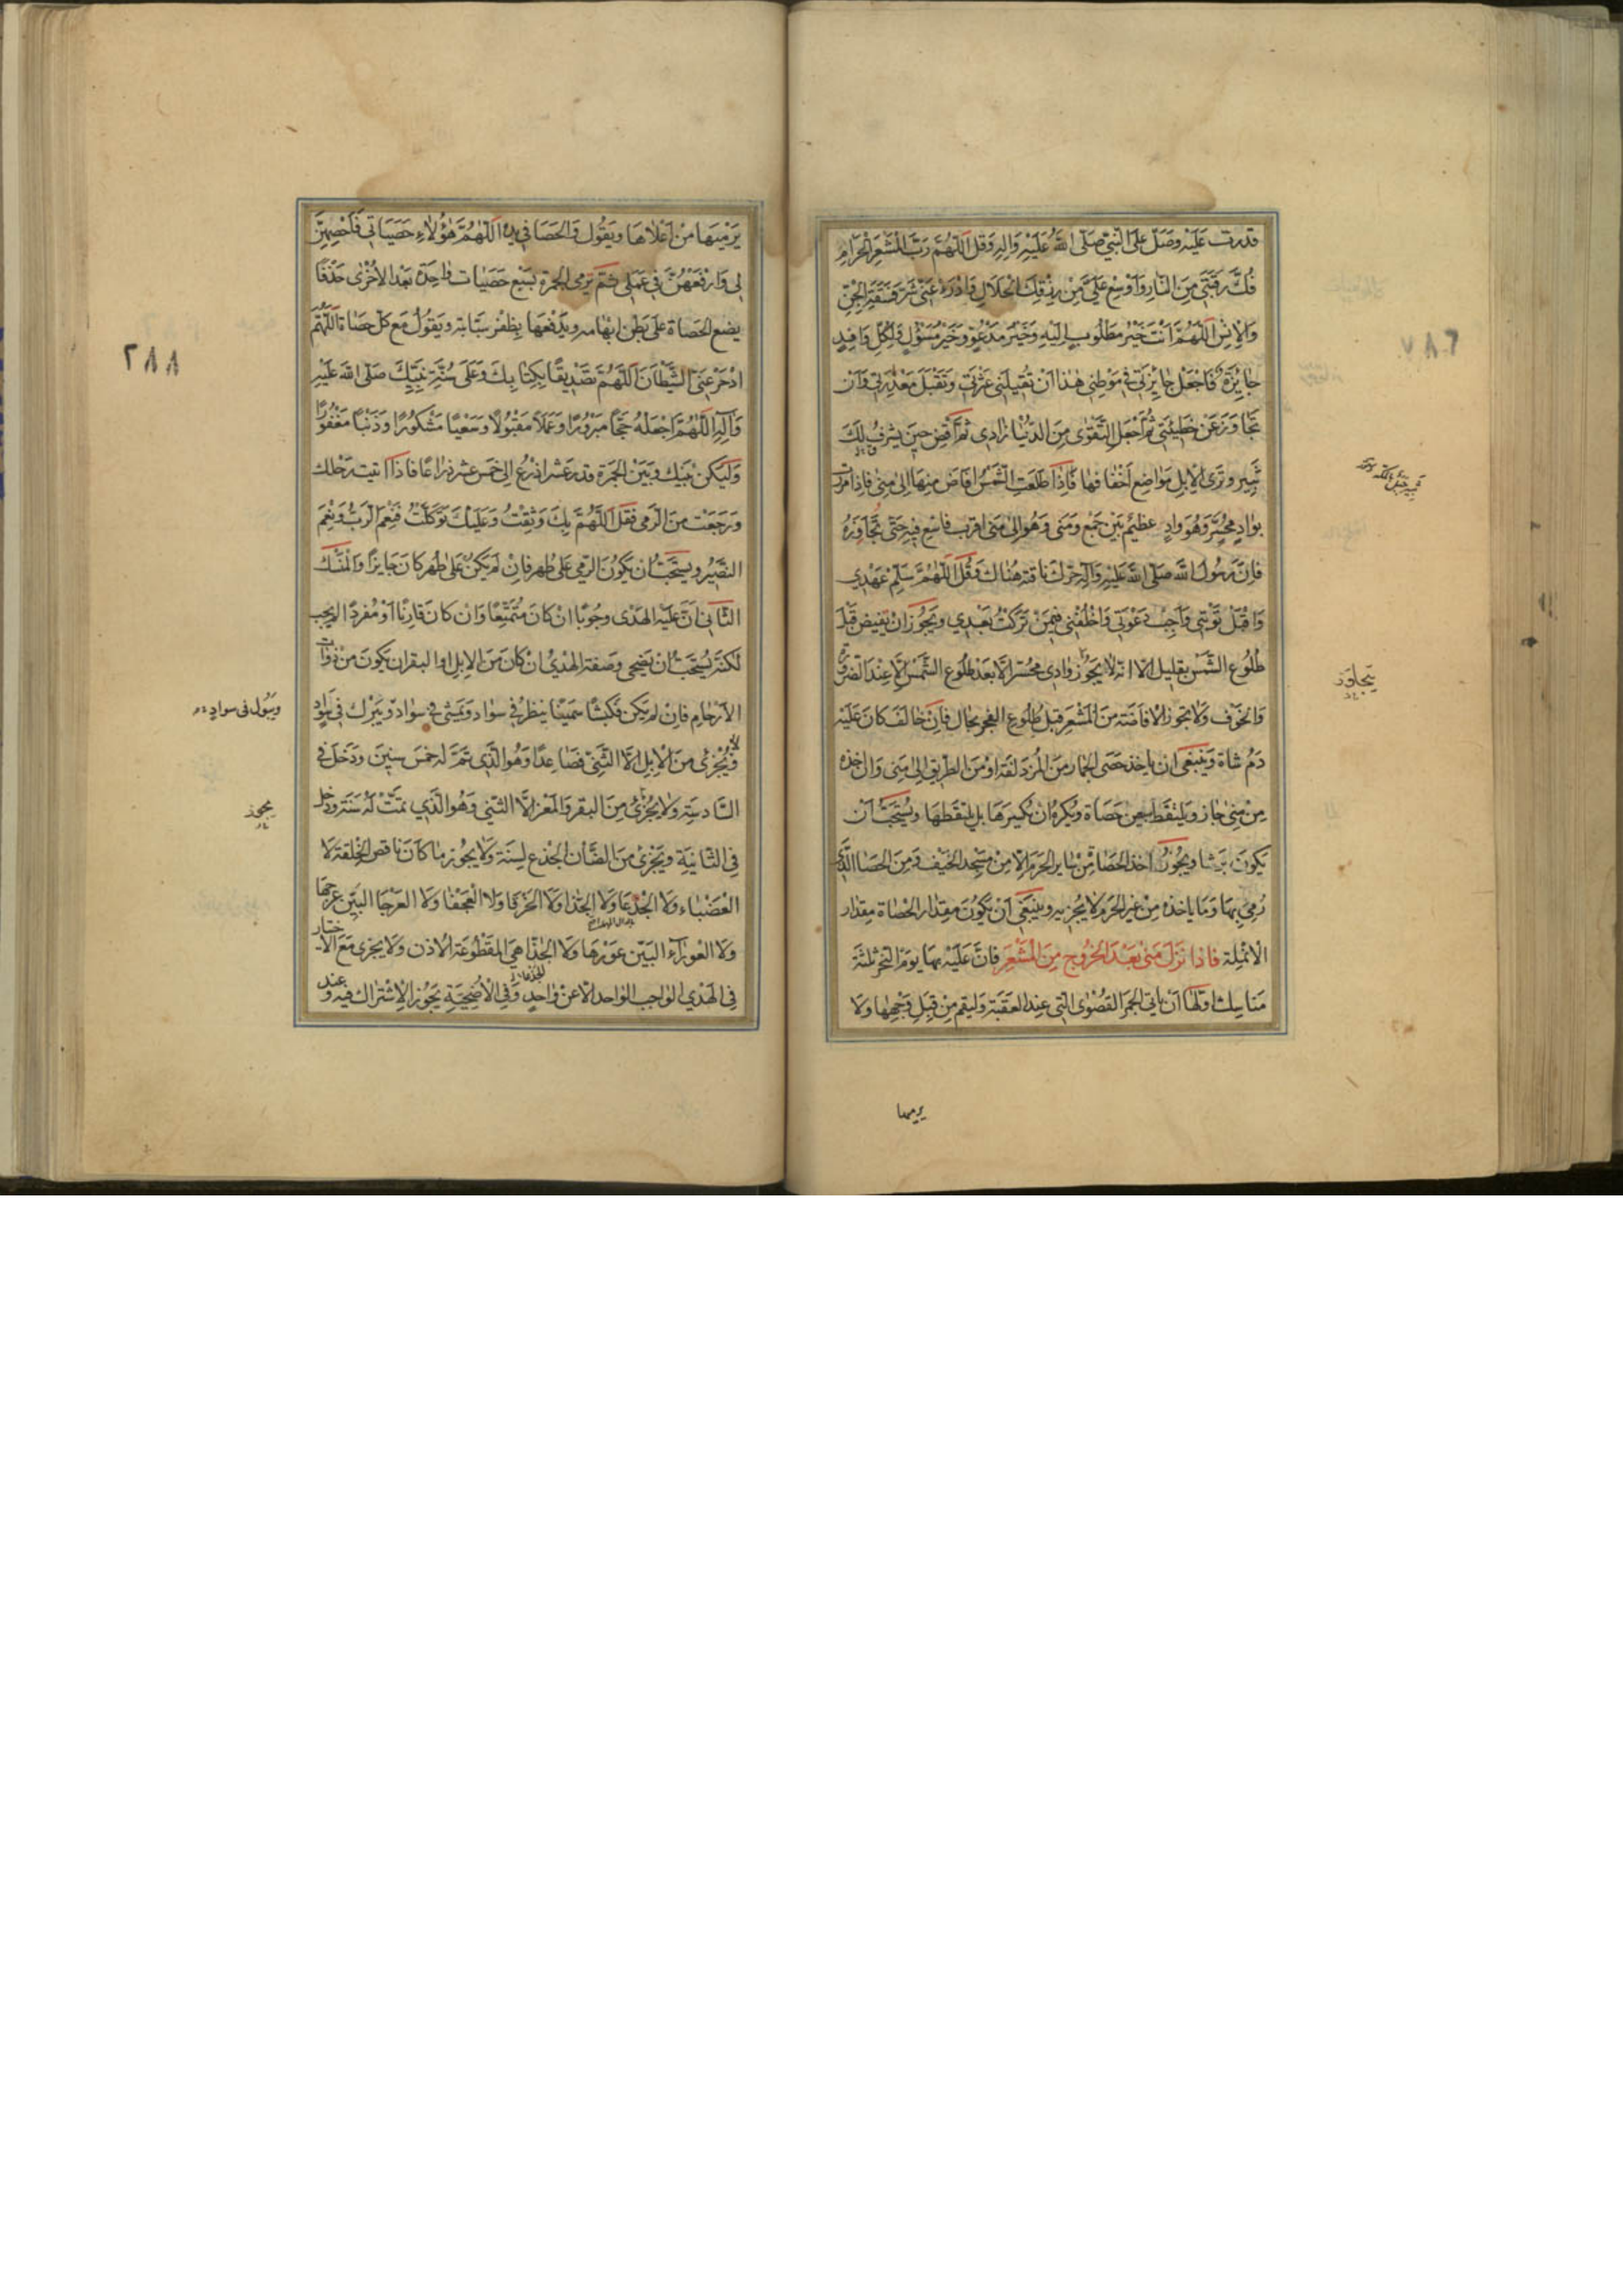 ٢٨٧
قدرت عليه وصَلّ عَلَى النَّبِيّ صَلّى اللهُ عَلَيْهِ وَالِهِ وَقل اَللّهُمَّ رَبَّ المَشْعَرِ الْحَرَامِ
فُكَّ رَقَبَتِي مِنَ النّارِ وَاَوْسِعْ عَلَيَّ مِنْ رِزْقِكَ الْحَلَالِ وَادْرَءْ عَنّي شَرَّ فَسَقَةِ الْجِنِّ
وَالْاِنْسِ اَللّهُمَّ اَنْتَ خَيْرُ مَطْلُوبٍ اِلَيْهِ وَخَيْرُ مَدْعُوٍّ وَخَيْرُ مَسْؤُلٍ وَلِكُلِّ وَافِدٍ
جَائِزَةٌ فَاجْعَلْ جَائِزَتي فِي مَوْطِنِي هٰذا اَنْ تُقِيلَنِي عَثْرَتي وَتَقْبَلَ مَعْذِرَتي وَاَنْ
تَجَاوَزَ عَنْ خَطِيئَتِي ثُمَّ اجْعَلِ التَّقْوٰى مِنَ الدُّنْيَا زَادِي ثُمَّ اَفِضْ حِينَ يشرقُ لَكَ
ثَبِير وتَرَى الْاِبِل مَوَاضِع اَخْفَافِهَا فَاِذَا طَلَعَتِ الشَّمْسُ اَفَاضَ مِنهَا اِلى مِنىٰ فاِذا مرَرت
بِوَادِ مُحَسِّر وَهُوَ وَادٍ عظيمٌ بَيْنَ جَمْع وَمنَى وَهُوَ اِلىٰ مِنىٰ اقرَب فاسْع فِيهِ حَتّى تُجَاوِزَهُ
فَاِنَّ رَسُولَ اللهِ صَلّى اللهُ عَلَيْهِ وَآلِهِ حَرَّكَ ناقته هُنَاكَ وَقُل اَللّهُمَّ سَلِّمْ عَهْدِي
وَاقْبَلْ تَوْبَتِي وَاَجِبْ دَعْوَتي وَاخْلُفْنِي فِيمَنْ تَرَكْتُ بَعْدِي ويَجُوزُ اَنْ يُفِيضَ قَبْلَ
طُلُوع الشَّمْسِ بِقَلِيلٍ اِلَّا انّه لا يَجُوز وَادِي مُحَسِّر اِلَّا بَعْدَ طُلُوعِ الشَّمْسِ اِلَّا عِنْدَ الضرورة
وَالخَوْف وَلَا يجوز الافَاضَة مِنَ المَشْعَرِ قَبْل طُلُوعِ الفَجْرِ بحَال فَاِنْ خَالَفَ كَانَ عَلَيْهِ
دَمُ شاة وَيَنْبَغِي اَن يَاخذَ حَصَى الجِمَار مِنَ المُزْدَلفَة اَوْ مِنَ الطرِيقِ اِلى مِنى وَاِنْ اخذه
مِنْ مِنىٰ جَاز وَيَلتَقط سَبعِينَ حَصَاة ويُكرَهُ اَنْ يُكَسِّرَهَا بَل يَلتَقطَهَا ويُسْتَحَبُّ اَنْ
تَكُونَ بَرشا ويَجُوزُ اخذ الحَصَا مِنْ سَاير الحَرَم اِلَّا مِنْ مَسْجِد الخَيْف وَمِنَ الحَصَا الذِي
رُمِيَ بِهَا وَمَا يَاخذه مِنْ غَيْرِ الحَرَم لَا يُجزيه ويَنْبَغِي اَنْ يَكُونَ مِقدَار الحَصَاة مِقدَار
الانْمِلة فَاذا نَزَلَ مِنىٰ بَعْدَ الخُرُوجِ مِنَ المَشْعَرِ فَاِنَّ عَلَيْهِ بِهَا يَوْمَ النَّحْرِ ثَلثَةَ
مَنَاسِك اوّلهَا اَنْ يَاتِي الجَمرَة القُصْوىٰ الّتِي عِندَ العَقَبَة وَليَقم مِنْ قِبَل وَجْهِهَا وَلَا
يتجاوز
يرميها
٢٨٨
يَرْمِيهَا مِنْ اَعْلَاهَا ويَقُول وَالحَصَا فِي يَدِهِ اَللّهُمَّ هٰؤُلَاءِ حَصَيَاتِي فَاَحْصِهِنَّ
لِي وَارْفَعْهُنَّ فِي عَمَلِي ثُمَّ يَرْمِي الجمرَة بسَبْع حَصَيات وَاحِدَة بَعْدَ الاُخْرىٰ خَذْفًا
يضع الحَصَاة عَلى بَطن ابْهَامه ويَدْفَعهَا بظُفر سَبَّابَته ويَقُولُ مَع كُلّ حَصَاة اَللّهُمَّ
ادْحَرْ عَنِّي الشَّيْطَانَ اَللّهُمَّ تَصْدِيقًا بِكِتَابِكَ وَعَلَى سُنَّةِ نَبِيِّكَ صَلَّى اللهُ عَلَيْهِ
وَآلِهِ اَللّهُمَّ اجْعَلْهُ حَجًّا مَبْرُورًا وَعَمَلًا مَقْبُولًا وَسَعْيًا مَشْكُورًا وَذَنْبًا مَغْفُورًا
وَلْيَكُنْ بَيْنَكَ وَبَيْنَ الجَمرَة قدر عَشر اذرُع اِلى خَمسَ عَشر ذِرَاعًا فَاذَا اتيت رَحْلك
وَرَجَعْت مِنَ الرَّمي فَقُل اَللّهُمَّ بِكَ وَثِقْتُ وَعَلَيْكَ تَوَكَّلْتُ فَنِعْمَ الرَّبُّ وَنِعْمَ
النَّصِيرُ ويسْتَحَبّ اَن يَكُونَ الرّمي عَلى طُهر فَاِنْ لَمْ يَكُنْ عَلى طُهر كَانَ جَايِزًا وَالمنسَك
الثَّانِي اَنَّ عَلَيْه الهَدْى وجُوبًا اِنْ كَانَ مُتمَتِّعًا وَاِن كَانَ قَارِنًا اَوْ مُفْرِدًا لَا يَجِب
لَكِنَّهُ يُسْتَحَبُّ اَن يُضَحِي وَصِفَة الهَدْي اِنْ كَانَ مِنَ الاِبِل او البقر ان يَكُونَ مِنْ ذَوَات
الاَرْحَام فَاِنْ لم يَكُن فَكَبْشًا سَمِينًا يَنظُر فِي سَوَاد وَيَمْشِي فِي سَوَاد وَيَبْرُك فِي سَوَادٍ
ويَبُول فى سوادٍ
ولا يُجْزئ مِنَ الْاِبِلِ اِلَّا الثَّنِيّ فَصَاعِدًا وَهُوَ الّذِي تَمَّ لَهُ خَمسَ سِنِينَ وَدَخَلَ فِي
السَّادِسَة وَلَا يُجْزئ مِنَ البَقَر وَالمَعْز اِلَّا الثَّنِي وَهُوَ الّذِي تَمَّتْ لَهُ سَنَة ودَخل
يجوز
فِي الثَّانِيَةِ وَيُجْزى مِنَ الضَّأن الجذَع لِسنَة وَلَا يَجُوز مَا كَانَ نَاقِصَ الْخِلقَة لَا
العَضْبَاء وَلَا الجَدْعَا وَلَا الجَذا وَلَا الخَرْقَا وَلَا العَجفَا وَلَا العَرْجَا البَيّن عَرجهَا
ولَا العَوْرَآء البَيّن عَوَرهَا وَلَا الجَذا هِيَ المَقْطُوعَة الاُذن وَلَا يجزى مَعَ الاختيار
فِي الهَدْي الوَاجِب الوَاحد اِلّا عَنْ وَاحِدٍ وَفِي الاُضحِيَّةِ يَجُوز الاِشْتِرَاك فيه وعند